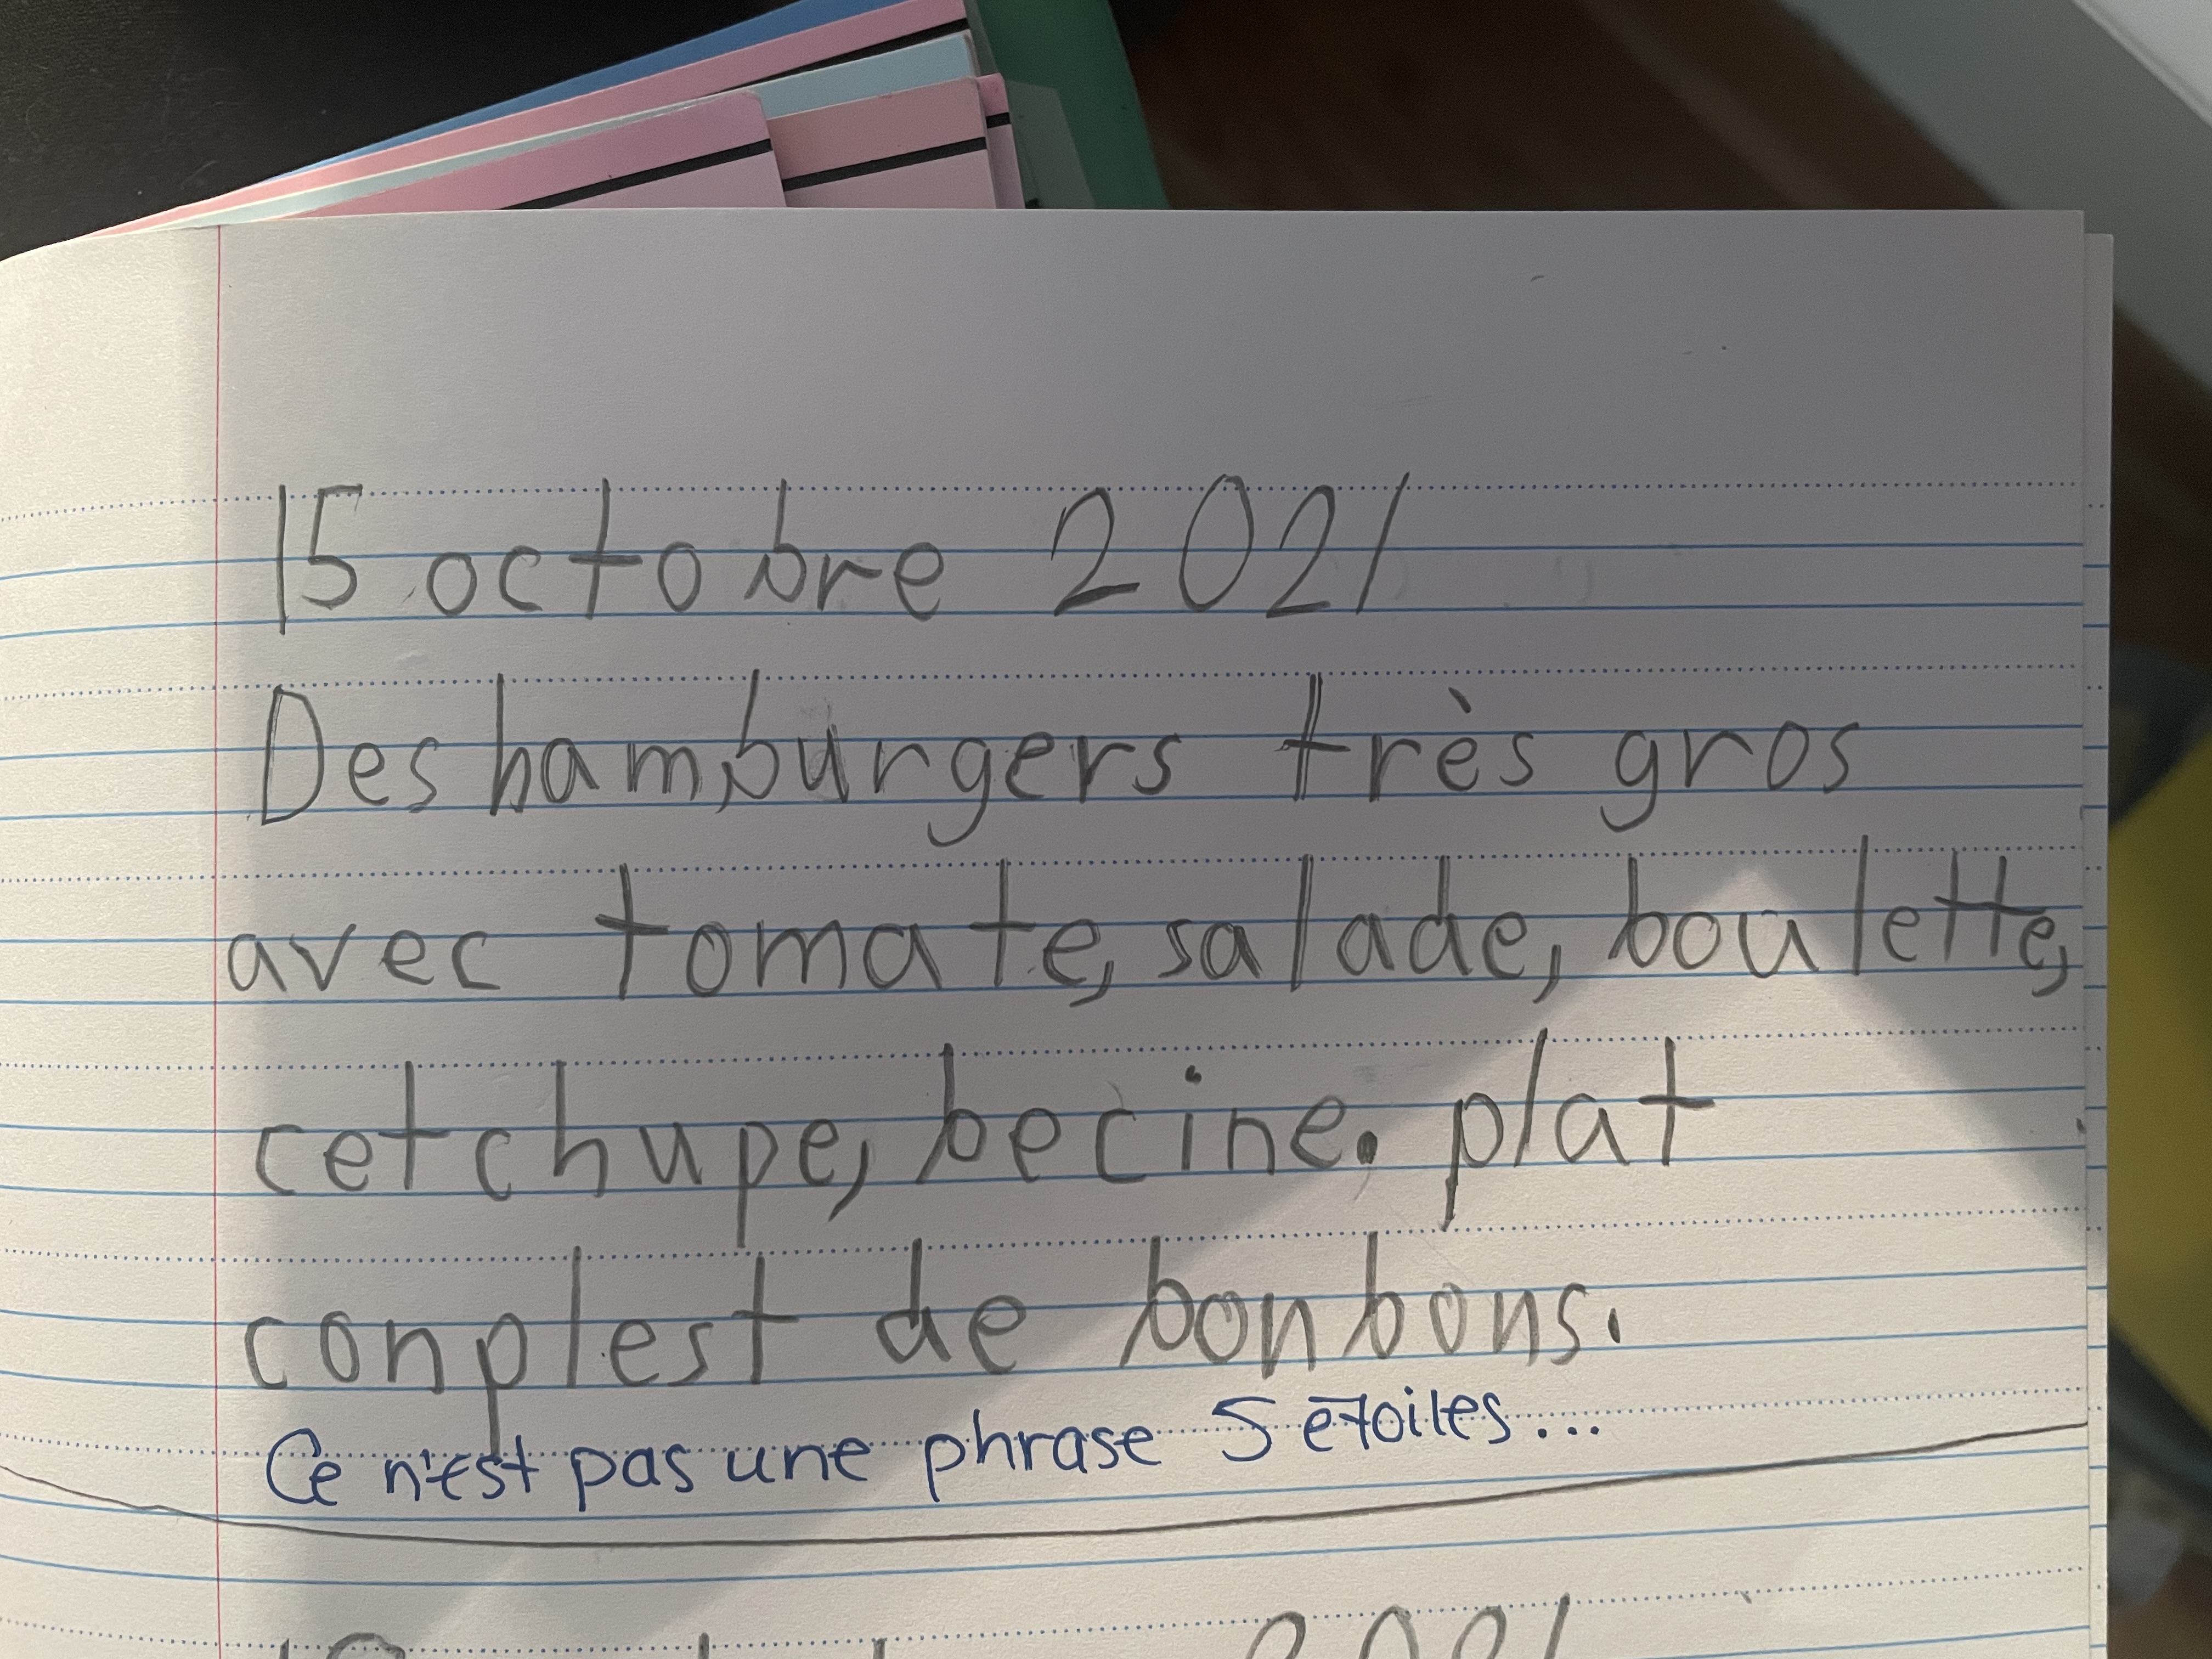 15 octobre 2021
Des hamburgers très gros
avec tomate, salade, boulette,
cetchupe, becine. plat
conplest de bonbons.
Ce n'est pas une phrase 5 étoiles...